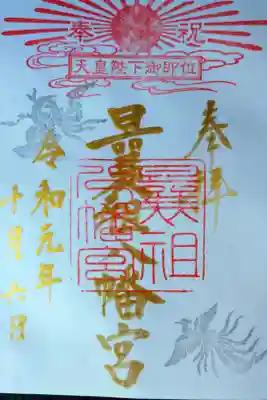 奉祝
天皇陛下御即位
奉拝
曩祖八幡宮
曩祖八幡宮
令和元年
十月六日